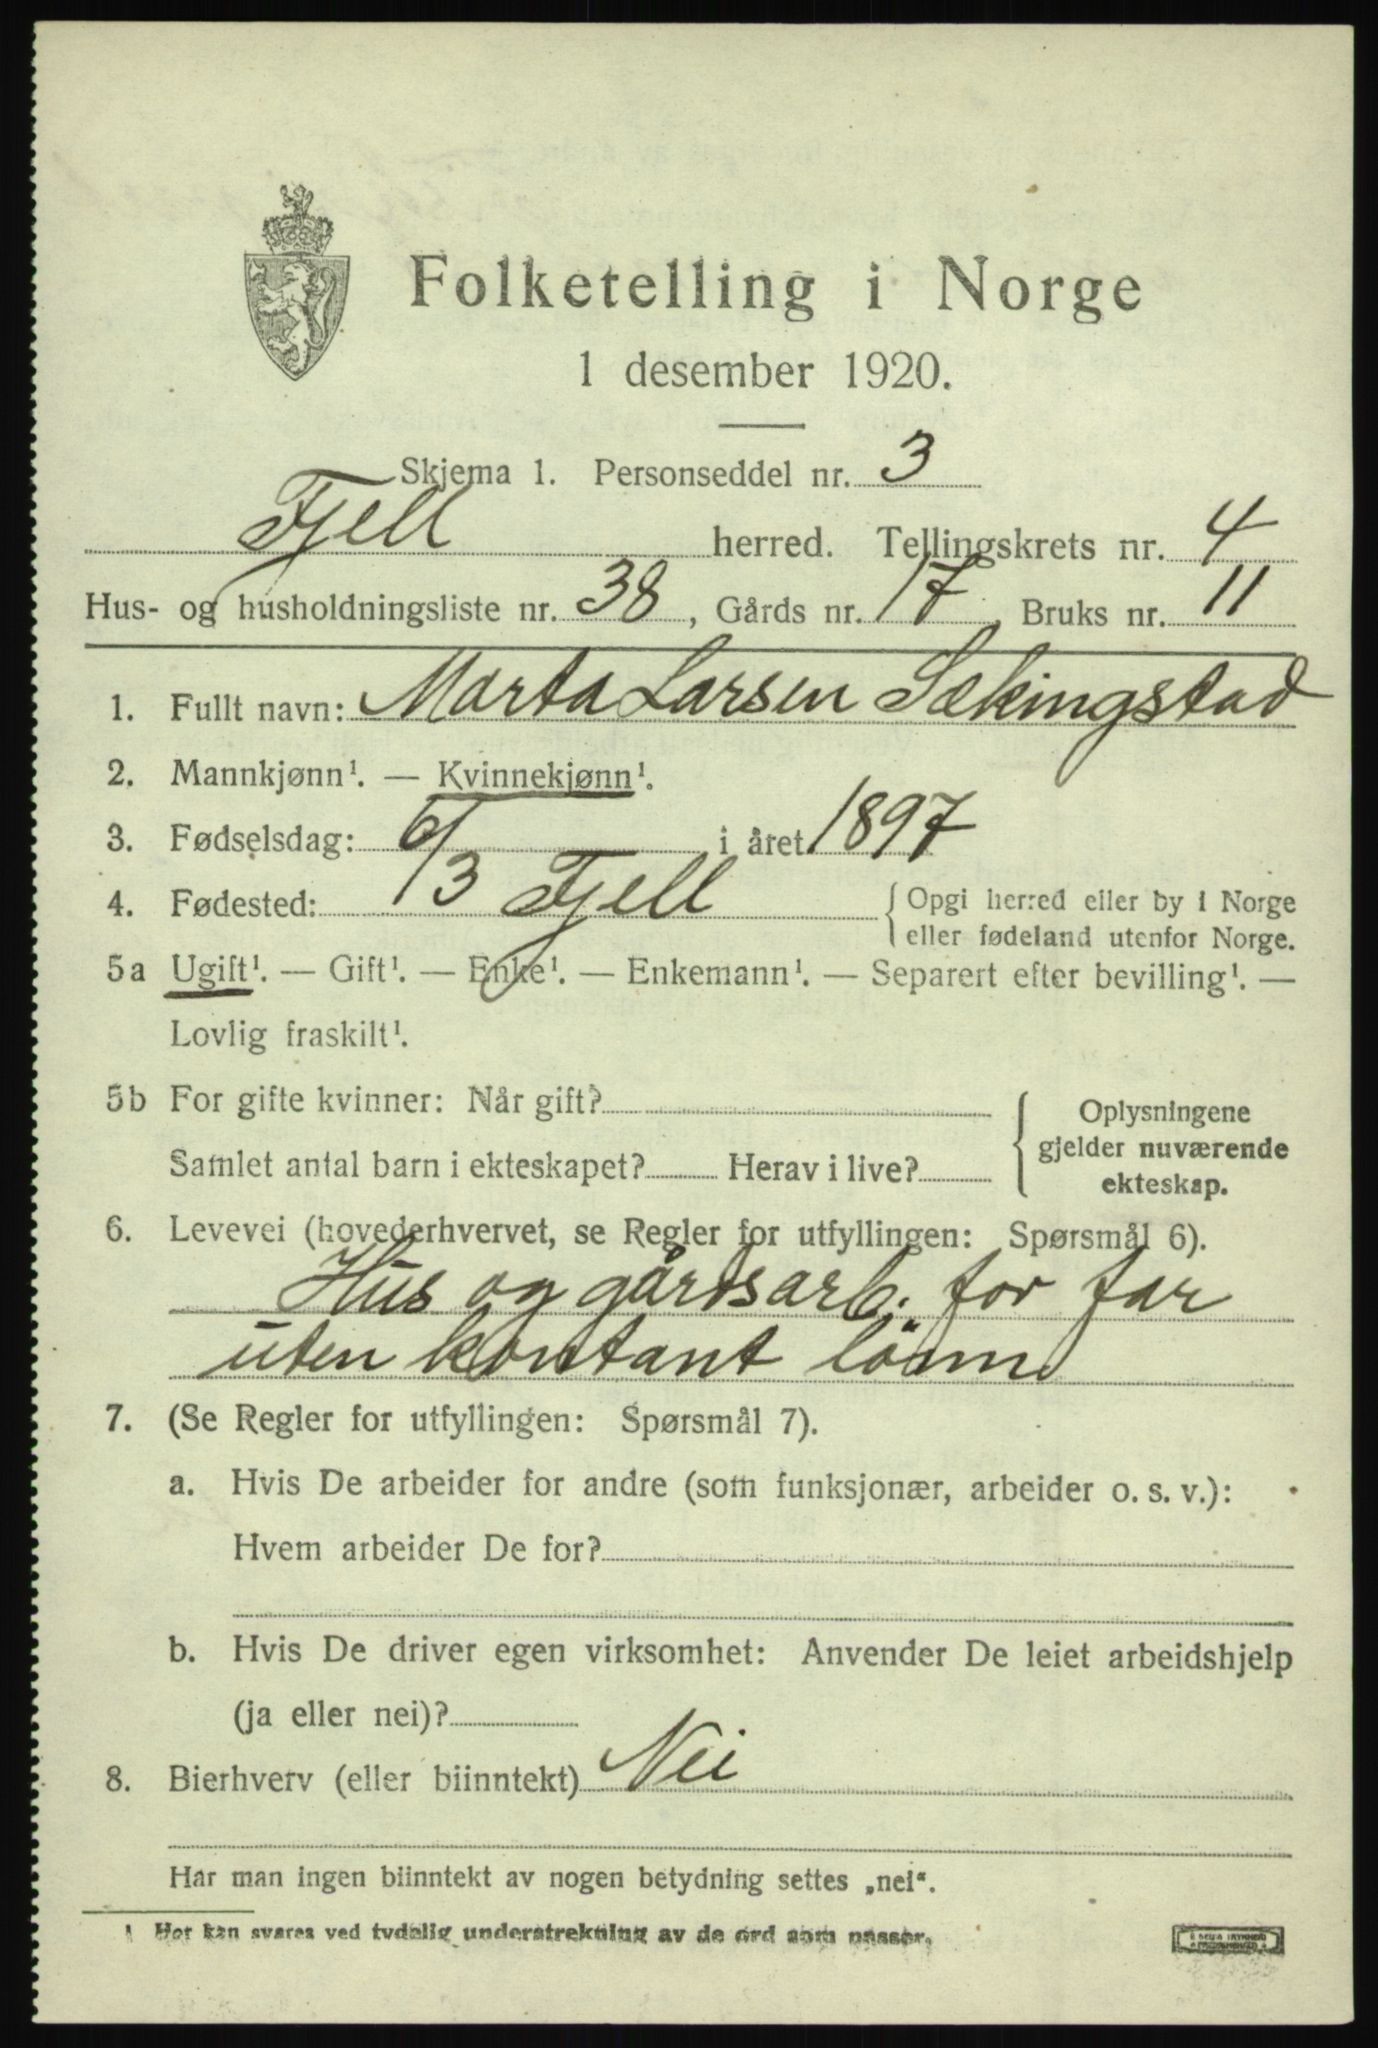 Folketelling i Norge
1 desember 1920.
Skjema 1. Personseddel nr. 3
Fjell herred. Tellingskrets nr. 4
Hus- og husholdningsliste nr. 38, Gårds nr. 17, Bruks nr. 11
1. Fullt navn: Marta Larsen Sækingstad
2. Mannkjønn¹. — Kvinnekjønn¹.
3. Fødselsdag: 6/3 i året 1897
4. Fødested: Fjell { Opgi herred eller by i Norge
eller fødeland utenfor Norge.
5a Ugift¹. — Gift¹. — Enke¹. — Enkemann¹. — Separert efter bevilling¹. —
Lovlig fraskilt¹.
5b For gifte kvinner: Når gift? { Oplysningene
gjelder nuværende
ekteskap.
Samlet antal barn i ekteskapet? Herav i live?
6. Levevei (hovederhvervet, se Regler for utfyllingen: Spørsmål 6).
Hus og gårdsarb. for far
uten kontant lönn
7. (Se Regler for utfyllingen: Spørsmål 7).
a. Hvis De arbeider for andre (som funksjonær, arbeider o. s. v.):
Hvem arbeider De for?
b. Hvis De driver egen virksomhet: Anvender De leiet arbeidshjelp
(ja eller nei)?
8. Bierhverv (eller biinntekt) Nei
Har man ingen biinntekt av nogen betydning settes „nei“.
1 Her kan svares ved tydelig understrekning av de ord som passer.